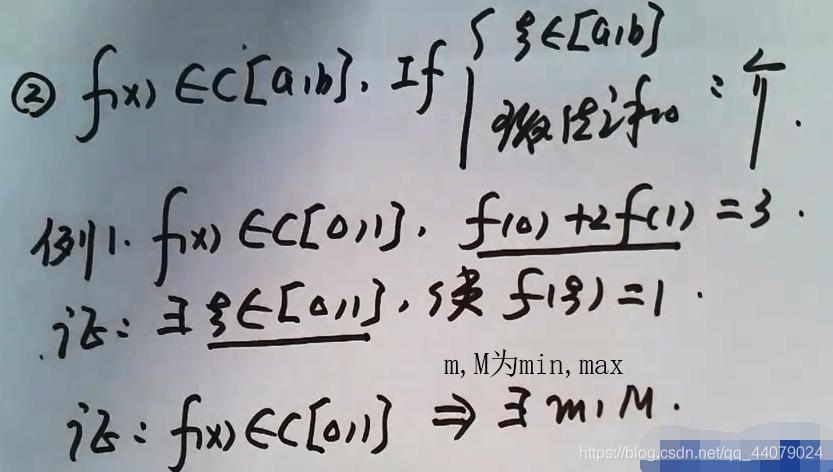 ② f(x)∈C[a,b]. If { ξ∈[a,b]
函数值之和
例1. f(x)∈C[0,1], f(0)+2f(1)=3.
证: ∃ξ∈[0,1], 使 f(ξ)=1.
m,M为min,max
证: f(x)∈C[0,1] ⇒ ∃m,M.
https://blog.csdn.net/qq_44079024